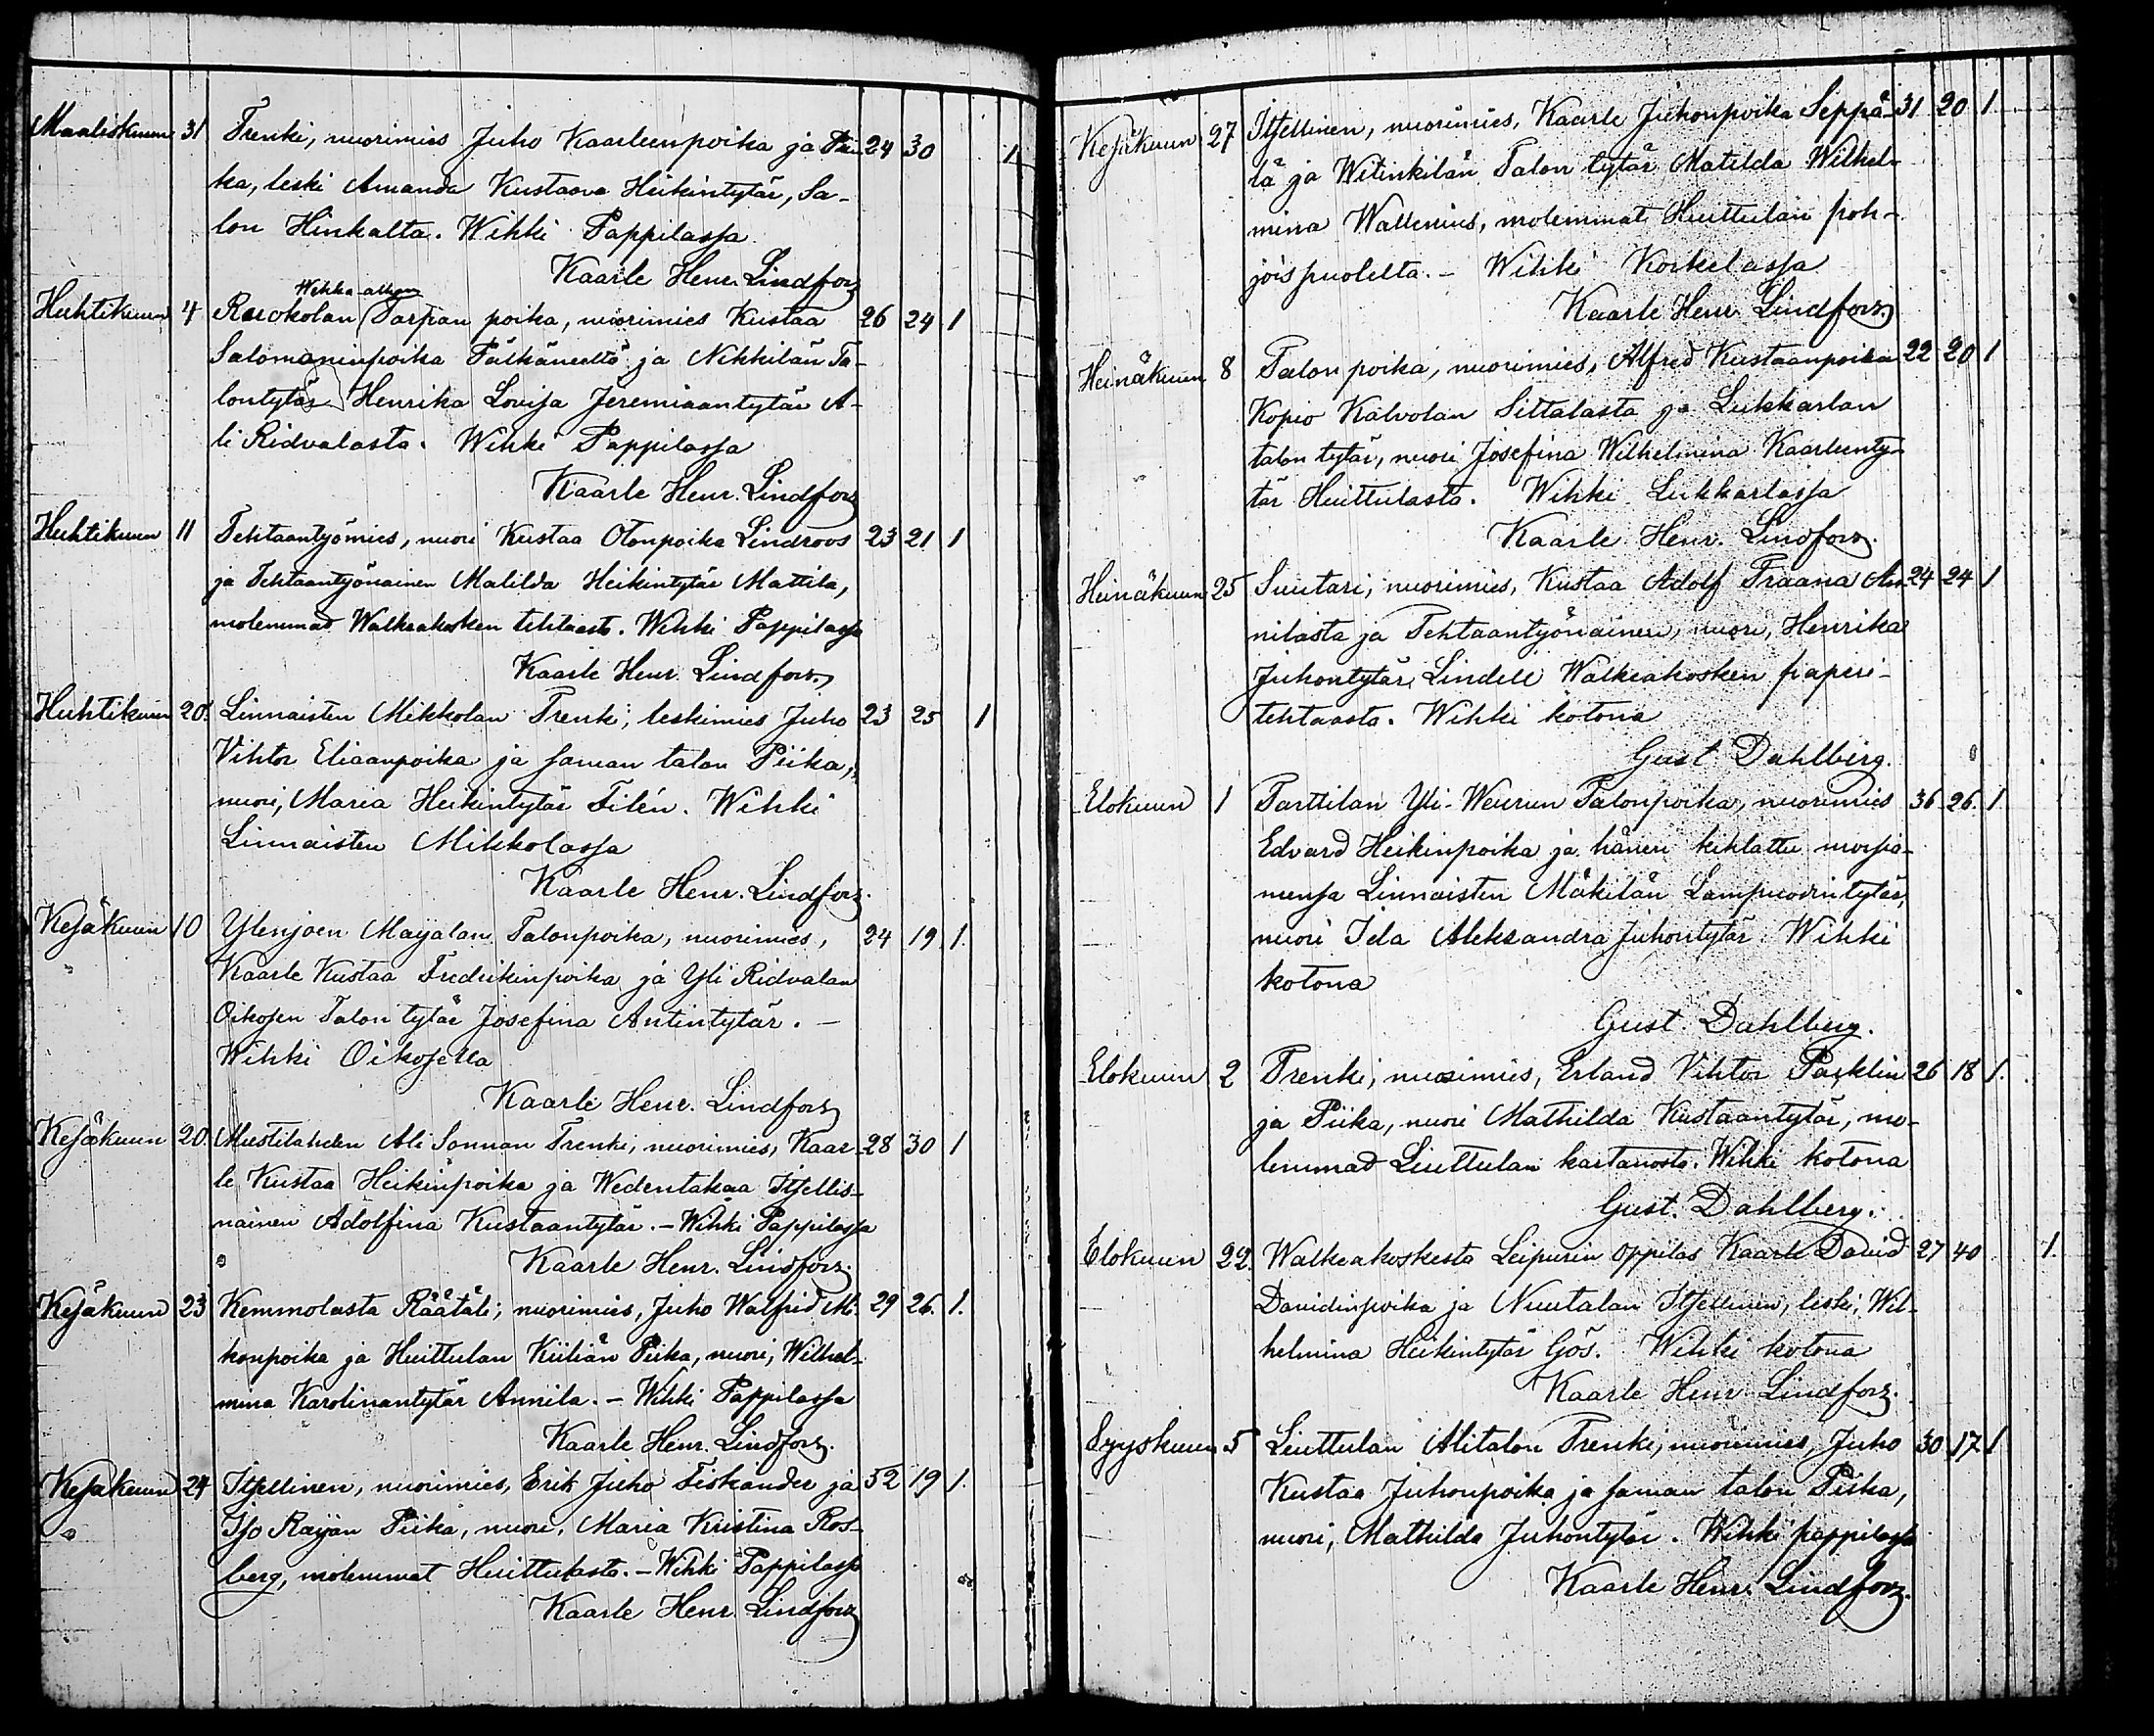 Maaliskuun 31 Trenki, nuorimies Juho Kaarleenpoika ja Pii- 24 30 1
ka, leski Amanda Kustaava Heikintytär, Sa-
lon Hinkalta. Wihki Pappilassa
Kaarle Henr. Lindfors
Wihka
Huhtikuun 4 Tarpian poika, nuorimies Kustaa 26 24 1
Salomoninpoika Pälkäneeltä ja Nikkilän Ta-
lontytär Henrika Lovisa Jeremiaantytär A-
li Ridvalasta. Wihki Pappilassa
Kaarle Henr. Lindfors
Huhtikuun 11 Tehtaantyömies, nuori Kustaa Otonpoika Lindroos 23 21 1
ja Tehtaantyönainen Matilda Heikintytär Mattila,
molemmad Walkeakosken tehtaasta. Wihki Pappilassa
Kaarle Henr. Lindfors
Huhtikuun 20. Linnaisten Mikkolan Trenki, leskimies Juho 23 25 1
Vihtor Eliaanpoika ja saman talon Piika,
nuori, Maria Heikintytär Filén. Wihki
Linnaisten Mikkolassa
Kaarle Henr. Lindfors.
Kesäkuun 10 Ylenjoen Maijalan Talonpoika, nuorimies, 24 19 1.
Kaarle Kustaa Fredrikinpoika ja Yli Ridvalan
Oikosen Talon tytär Josefina Antintytär. -
Wihki Oikosella
Kaarle Henr. Lindfors
Kesäkuun 20. Mustilahden Ali Sonnan Trenki, nuorimies, Kaar- 28 30 1
le Kustaa Heikinpoika ja Wedentakaa Itsellis-
nainen Adolfina Kustaantytär. - Wihki Pappilassa
Kaarle Henr. Lindfors.
Kesäkuun 23 Kemmolasta Räätäli, nuorimies, Juho Walfrid Mi- 29 26. 1.
konpoika ja Huittulan Kiilian Piika, nuori, Wilhel-
mina Karolinantytär Annila. - Wihki Pappilassa
Kaarle Henr. Lindfors.
Kesäkuun 24 Itsellinen, nuorimies, Erik Juho Fiskander ja 52 19 1.
Iso Raijan Piika, nuori, Maria Kristina Ros-
berg, molemmat Huittulasta. - Wihki Pappilassa
Kaarle Henr. Lindfors
Kesäkuun 27 Itsellinen, nuorimies, Kaarle Juhonpoika Seppä- 31 20 1
lä ja Witinkilän Talon tytär Matilda Wilhel-
mina Wallenius, molemmat Huittulan poh-
jois puolelta. - Wihki Korkelassa
Kaarle Henr Lindfors.
Heinäkuun 8 Talon poika, nuorimies, Alfred Kustaanpoika 22 20 1
Kopio Kalvolan Sittalasta ja Lukkarlan
talon tytär, nuori Josefina Wilhelmina Kaarleenty-
tär Huittulasta. Wihki Lukkarlassa
Kaarle Henr. Lindfors.
Heinäkuun 25 Suutari, nuorimies, Kustaa Adolf Traana An- 24 24 1
nilasta ja Tehtaantyönainen, nuori, Henrika
Juhontytär Lindell Walkeakosken paperi-
tehtaasta. Wihki kotona
Gust Dahlberg.
Elokuun 1 Tarttilan Yli-Werrun Talonpoika, nuorimies 36 26. 1.
Edvard Heikinpoika ja hänen kihlattu morsia-
mensa Linnaisten Mäkilän Lampuodintytär,
nuori Ida Aleksandra Juhontytär. Wihki
kotona
Gust. Dahlberg.
Elokuun 2 Trenki, nuorimies, Erland Vihtor Parklin 26 18 1.
ja Piika, nuori Mathilda Kustaantytär, mo-
lemmad Liuttulan kartanosta. Wihki kotona
Gust. Dahlberg.
Elokuun 22. Walkeakoskesta Leipurin oppilas Kaarle David 27 40 1.
Davidinpoika ja Nuutalan Itsellinen, leski, Wil-
helmina Heikintytär Gös. Wihki kotona
Kaarle Henr Lindfors.
Syyskuun 5 Liuttulan Alitalon Trenki, nuorimies, Juho 30 17 1
Kustaa Juhonpoika ja saman talon Piika,
nuori, Mathilda Juhontytär. Wihki pappilassa
Kaarle Henr. Lindfors.